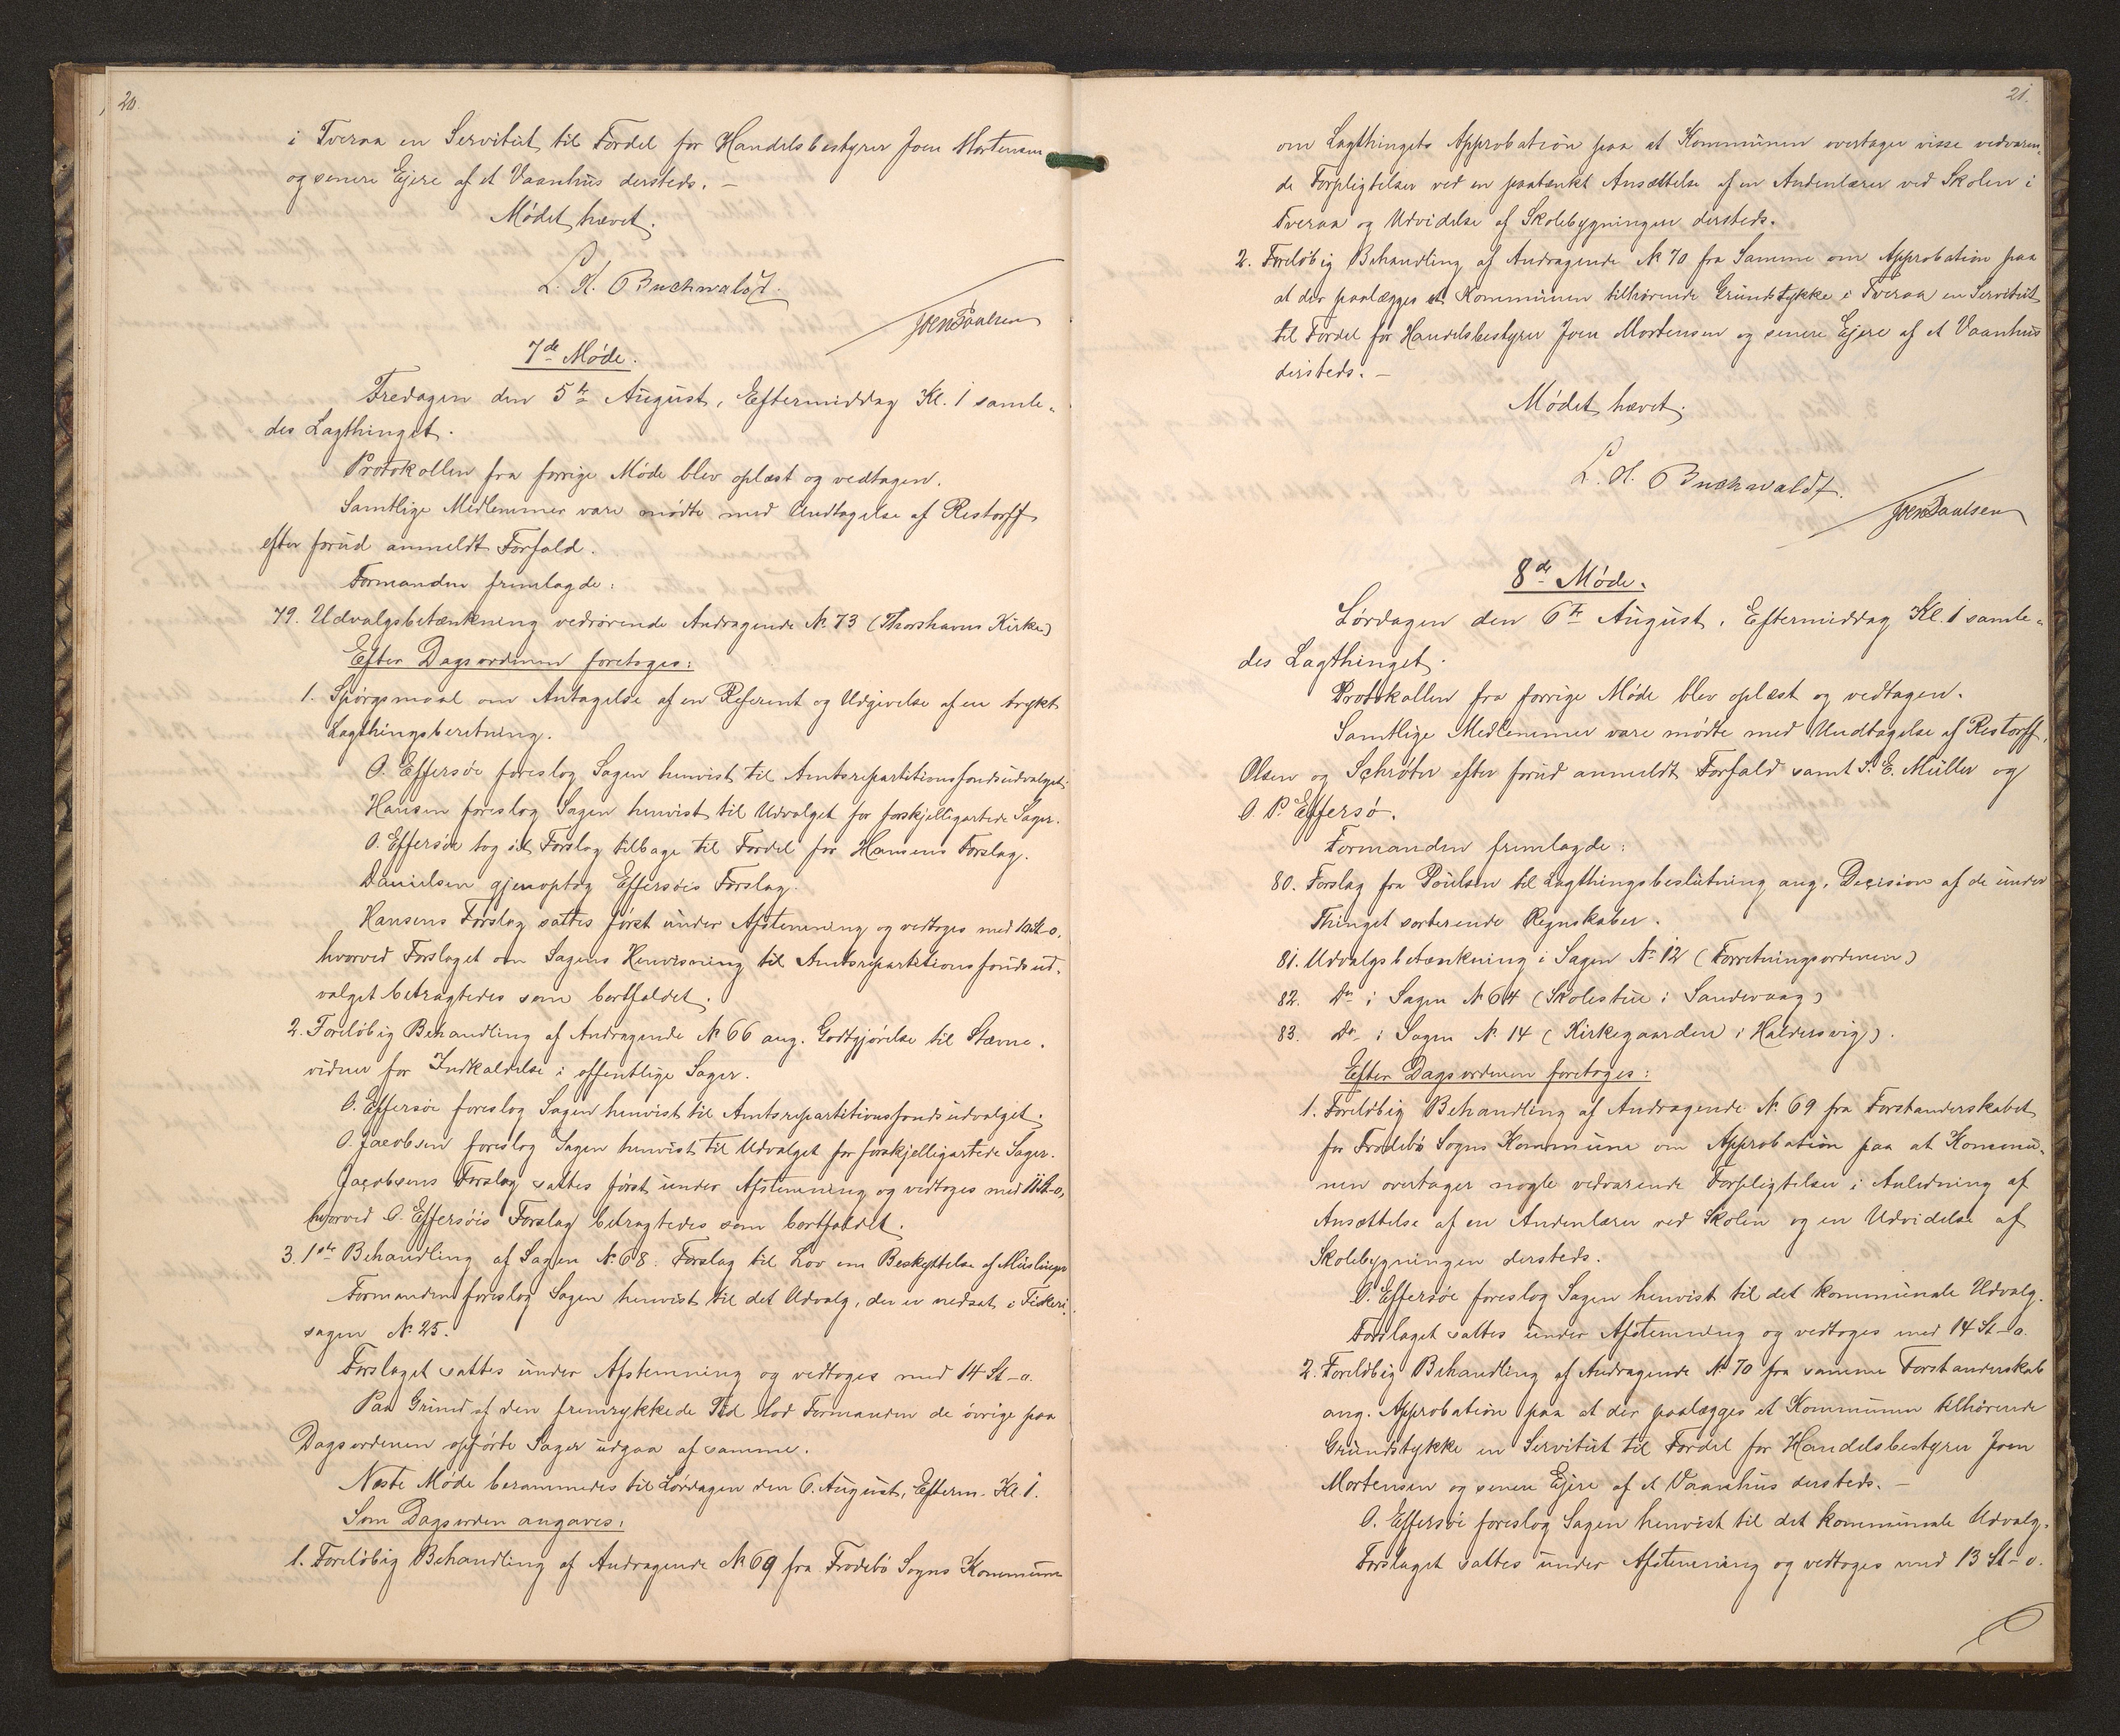 20.
i Tveraa en Servitut til Fordel for Handelsbestyrer Joen Mortensen
og senere Ejere af et Vaanhus dersteds. —
Mødet hævet.
L. H. Buchwaldt.
Joen Poulsen
7de Møde.
Fredagen den 5te August, Eftermiddag Kl. 1 samle-
des Lagthinget.
Protokollen fra forrige Møde blev oplæst og vedtagen.
Samtlige Medlemmer vare mødte med Undtagelse af Restorff
efter forud anmeldt Forfald.
Formanden fremlagde:
79. Udvalgsbetænkning vedrørende Andragende No 73 (Thorshavns Kirke)
Efter Dagsordenen foretoges:
1. Spørgsmaal om Antagelse af en Referent og Udgivelse af en trykt
Lagthingsberetning.
O. Effersøe foreslog Sagen henvist til Amtsrepartitionsfondsudvalget.
Hansen foreslog Sagen henvist til Udvalget for forskjelligartede Sager.
O. Effersøe tog sit Forslag tilbage til Fordel for Hansens Forslag.
Danielsen gjenoptog Effersøes Forslag.
Hansens Forslag sattes først under Afstemning og vedtoges med 10 St-0.
hvorved Forslaget om Sagens Henvisning til Amtsrepartitionsfondsud-
valget betragtedes som bortfaldet.
2. Foreløbig Behandling af Andragende No 66 ang. Godtgjørelse til Stævne-
vidner for Indkaldelse i offentlige Sager.
O. Effersøe foreslog Sagen henvist til Amtsrepartitionsfondsudvalget.
O. Jacobsen foreslog Sagen henvist til Udvalget for forskjelligartede Sager.
Jacobsens Forslag sattes først under Afstemning og vedtoges med 11 St-0,
hvorved O. Effersøes Forslag betragtedes som bortfaldet.
3. 1ste Behandling af Sagen No 68. Forslag til Lov om Beskyttelse af Muslinger
Formanden foreslog Sagen henvist til det Udvalg, der er nedsat i Fiskeri-
sagen No 25.
Forslaget sattes under Afstemning og vedtoges med 14 St-0.
Paa Grund af den fremrykkede Tid lod Formanden de øvrige paa
Dagsordenen opførte Sager udgaa af samme.
Næste Møde berammedes til Lørdagen den 6. August, Efterm. Kl. 1.
Som Dagsorden angaves:
1. Foreløbig Behandling af Andragende No 69 fra Frodebø Sogns Kommune
21.
om Lagthingets Approbation paa at Kommunen overtager visse vedvaren-
de Forpligtelser ved en paatænkt Ansættelse af en Andenlærer ved Skolen i
Tveraa og Udvidelse af Skolebygningen dersteds.
2. Foreløbig Behandling af Andragende No 70 fra Samme om Approbation paa
at der paalægges et Kommunen tilhørende Grundstykke i Tveraa en Servitut
til Fordel for Handelsbestyrer Joen Mortensen og senere Ejere af et Vaanhus
dersteds. —
Mødet hævet.
L. H. Buchwaldt.
Joen Poulsen
8de Møde.
Lørdagen den 6te August, Eftermiddag Kl. 1 samle-
des Lagthinget.
Protokollen fra forrige Møde blev oplæst og vedtagen.
Samtlige Medlemmer vare mødte med Undtagelse af Restorff,
Olsen og Schrøter efter forud anmeldt Forfald samt S. E. Müller og
O. P. Effersø.
Formanden fremlagde:
80. Forslag fra Poulsen til Lagthingsbeslutning ang. Decision af de under
Thinget sorterende Regnskaber.
81. Udvalgsbetænkning i Sagen No 12 (Forretningsordenen)
82. Do i Sagen No 64 (Skolestue i Sandevaag)
83. Do i Sagen No 14 (Kirkegaarden i Haldersvig).
Efter Dagsordenen foretoges:
1. Foreløbig Behandling af Andragende No 69 fra Forstanderskabet
for Frodebø Sogns Kommune om Approbation paa at Kommu-
nen overtager nogle vedvarende Forpligtelser i Anledning af
Ansættelse af en Andenlærer ved Skolen og en Udvidelse af
Skolebygningen dersteds.
O. Effersøe foreslog Sagen henvist til det kommunale Udvalg.
Forslaget sattes under Afstemning og vedtoges med 14 St-0.
2. Foreløbig Behandling af Andragende No 70 fra samme Forstanderskab
ang. Approbation paa at der paalægges et Kommunen tilhørende
Grundstykke en Servitut til Fordel for Handelsbestyrer Joen
Mortensen og senere Ejere af et Vaanhus dersteds. —
O. Effersøe foreslog Sagen henvist til det kommunale Udvalg.
Forslaget sattes under Afstemning og vedtoges med 13 St-0.